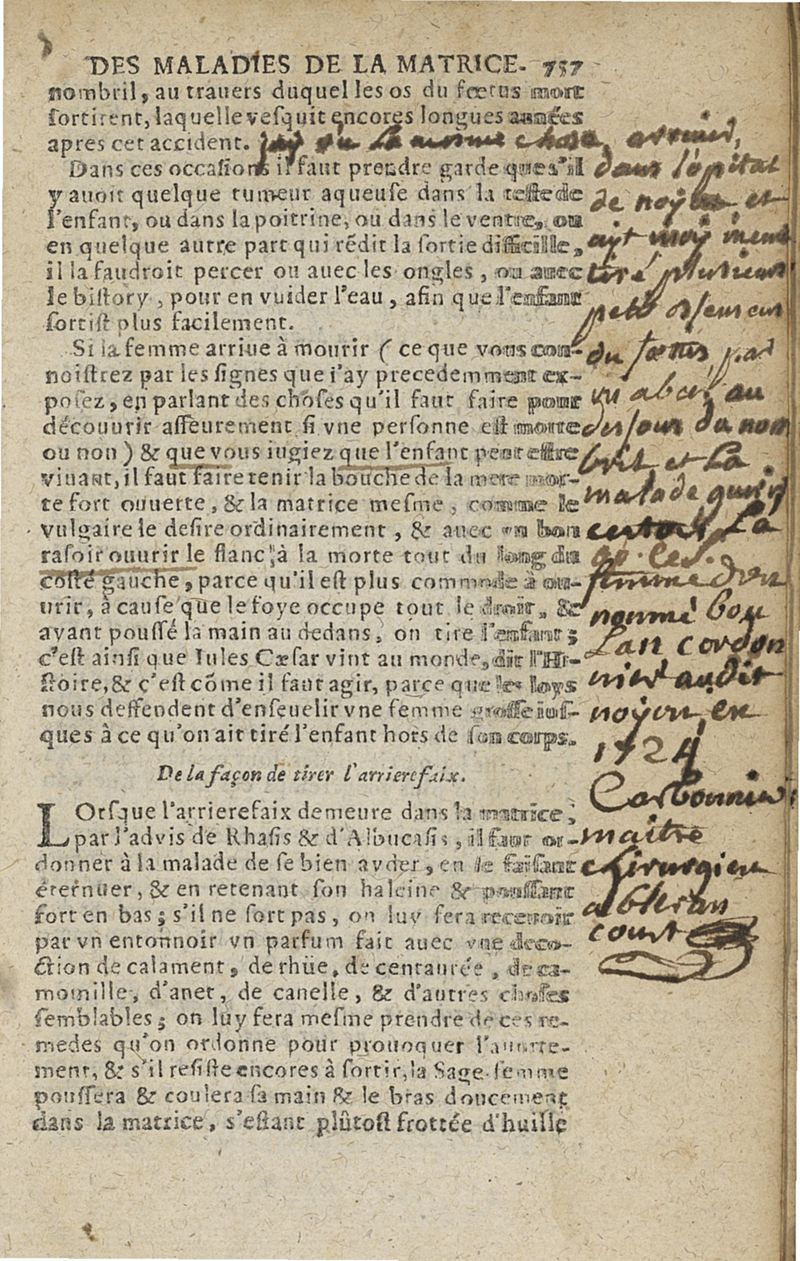 DES MALADIES DE LA MATRICE. 757
nombril, au trauers duquel les os du fœtus mort
sortirent, laquelle vesquit encores longues années
apres cet accident.
Dans ces occasions il faut prendre garde que s'il
y auoit quelque tumeur aqueuse dans la teste de
l'enfant, ou dans la poitrine, ou dans le ventre, ou
en quelque autre part qui rẽdit la sortie difficille,
il la faudroit percer ou auec les ongles, ou auec
le bistory, pour en vuider l'eau, afin que l'enfant
sortist plus facilement.
Si la femme arriue à mourir (ce que vous con-
noistrez par les signes que i'ay precedemment ex-
posez, en parlant des choses qu'il faut faire pour
découurir asseurement si vne personne est morte
ou non) & que vous iugiez que l'enfant peut estre
viuant, il faut faire tenir la bouche de la mere mor-
te fort ouuerte, & la matrice mesme, comme le
vulgaire le desire ordinairement, & auec vn bon
rasoir ouurir le flanc à la morte tout du long du
costé gauche, parce qu'il est plus commode à ou-
urir, à cause que le foye occupe tout le droit, &
ayant poussé la main au dedans, on tire l'enfant;
c'est ainsi que Iules Cæsar vint au monde, dit l'Hi-
stoire, & c'est cõme il faut agir, parce que les loys
nous deffendent d'enseuelir vne femme grosse ius-
ques à ce qu'on ait tiré l'enfant hors de son corps.
De la façon de tirer l'arrierefaix.
LOrsque l'arrierefaix demeure dans la matrice,
par l'advis de Rhasis & d'Albucasis, il faut or-
donner à la malade de se bien ayder, en le faisant
éternuer, & en retenant son haleine & poussant
fort en bas; s'il ne sort pas, on luy fera receuoir
par vn entonnoir vn parfum fait auec vne deco-
ction de calament, de rhüe, de centaurée, de ca-
momille, d'anet, de canelle, & d'autres choses
semblables; on luy fera mesme prendre de ces re-
medes qu'on ordonne pour prouoquer l'auorte-
ment, & s'il resiste encores à sortir, la Sage-femme
poussera & coulera sa main & le bras doucement
dans la matrice, s'estant plûtost frottée d'huille
jay vu la meme chose, arriué,
dans lopital
de noyon et
ayt moy meme
tiré plusieurs
petit ossemens
du fœtus, par
vu abcez au
dessous du nom
bril et la
malade guerit
cestoit la
femme d'un
nommé bou
lan cordon
nier audit
noyon, en
1724
Carbonnier
maitre
chirurgien
a bleran
court